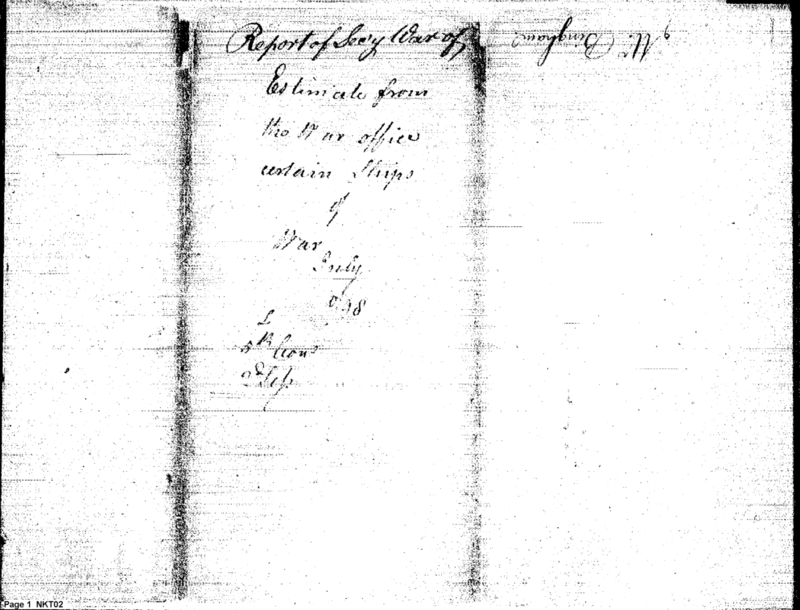 Report of Secy War of
Estimate from
the War office
certain Ships
of
War
July
98
L
5th Cons
2d Sess
Mr. Bingham
Page 1 NKT02